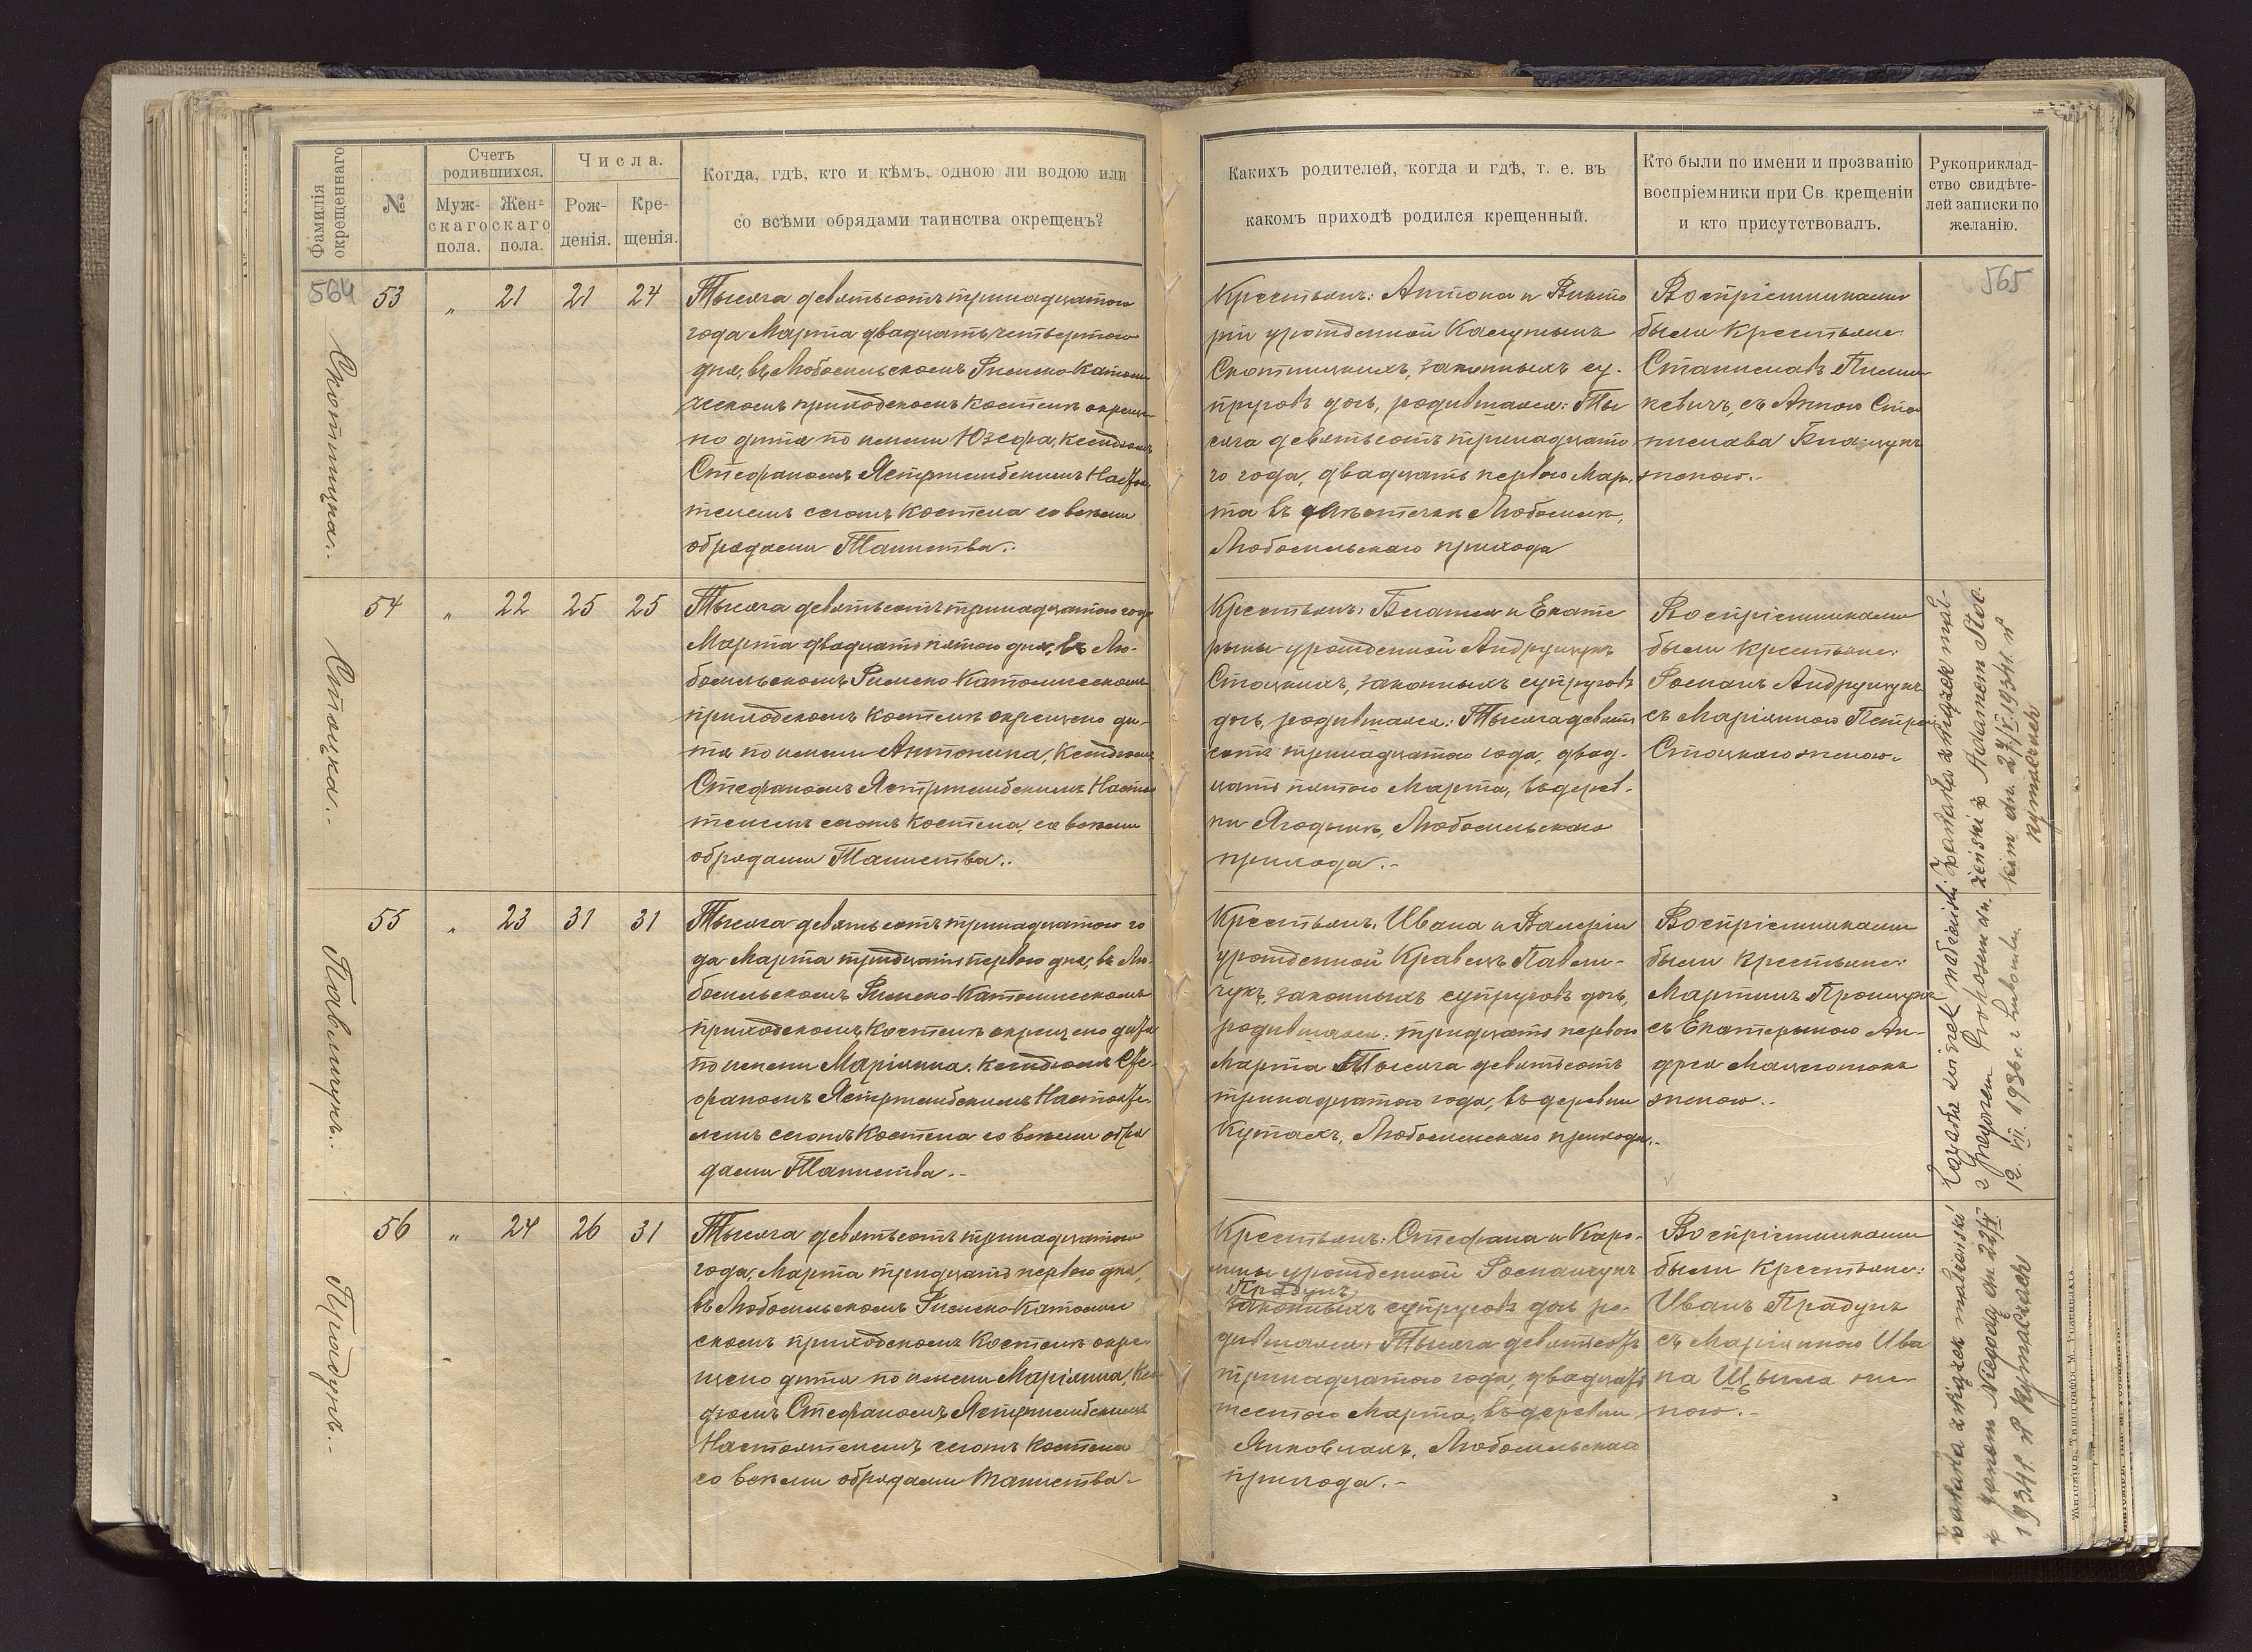 Фамилія окрещеннаго
№
Счетъ родившихся.
Муж-
скаго
пола.
Жен-
скаго
пола.
Числа.
Рож-
денія.
Кре-
щенія.
Когда, гдѣ, кто и кѣмъ, одною ли водою или
со всѣми обрядами таинства окрещенъ?
Какихъ родителей, когда и гдѣ, т. е. въ
какомъ приходѣ родился крещенный.
Кто были по имени и прозванію
воспріемники при Св. крещеніи
и кто присутствовалъ.
Рукоприклад-
ство свидѣте-
лей записки по
желанію.
564
565
53 „ 21 21 24
Скотницка..
Тысяча девятьсотъ тринадцатого
года Марта двадцать четвертого
дня, въ Любомльскомъ Римско Католи
ческомъ приходскомъ Костелѣ окреще-
но дитя по имени Юзефа, Ксендзомъ
Стефаномъ Ястржембскимъ Настоя
телемъ сегожъ Костела со всѣми
обрядами Таинства..
Крестьянъ: Антона и Викто
ріи урожденной
Скотницкихъ, законныхъ су-
пруговъ дочь, родившаяся: Ты
сяча девятьсотъ тринадцато
го года, двадцать первого Мар-
та въ мѣстечкѣ Любомлѣ,
Любомльскаго прихода
Воспріемниками
были крестьяне:
Станиславъ
кевичъ, съ Анною Ста
нислава
женою..
54 „ 22 25 25
Стоцка..
Тысяча девятьсотъ тринадцатого года
Марта двадцать пятого дня, въ Лю-
бомльскомъ Римско Католическомъ
приходскомъ Костелѣ окрещено ди-
тя по имени Антонина, Ксендзомъ
Стефаномъ Ястржембскимъ Настоя
телемъ сегожъ Костела, со всѣми
обрядами Таинства..
Крестьянъ: и Екате
рины урожденной Андрущукъ
Стоцкихъ, законныхъ супруговъ
дочь, родившаяся: Тысяча девять
сотъ тринадцатого года, двад-
цать пятого Марта, въ дерев-
ни Ягодинѣ, Любомльскаго
прихода.-
Воспріемниками
были крестьяне:
Романъ Андрущукъ
съ Маріянною Петра
Стоцкаго женою.
55 „ 23 31 31
Павлищукъ..
Тысяча девятьсотъ тринадцатого го
да Марта тридцать первого дня, въ Лю-
бомльскомъ Римско-Католическомъ
приходскомъ Костелѣ окрещено дитя
по имени Маріянна, Ксендзомъ Сте-
фаномъ Ястржембскимъ Настояте-
лемъ сегожъ Костела со всѣми обря
дами Таинства.-
Крестьянъ: Ивана и Валеріи
урожденной Кравецъ Павли-
чукъ, законныхъ супруговъ дочь,
родившаяся: тридцать первого
Марта Тысяча девятьсотъ
тринадцатого года, въ деревни
Кутахъ, Любомльскаго прихода.-
Воспріемниками
были крестьяне:
Мартинъ
съ Екатериною Ан-
дрея
женою..
56 „ 24 26 31
Прадунъ..
Тысяча девятьсотъ тринадцатого
года, Марта тридцать первого дня,
въ Любомльскомъ Римско-Католиче
скомъ приходскомъ Костелѣ окре-
щено дитя по имени Маріянна, Ксен
дзомъ Стефаномъ Ястржембскимъ
Настоятелемъ сегожъ Костела
со всѣми обрядами таинства.-
Крестьянъ: Стефана и Каро-
лины урожденной Романчукъ
Прадунъ
законныхъ супруговъ дочь ро-
дившаяся: Тысяча девятьсотъ
тринадцатого года, двадцать
шестого Марта, въ деревни
Янковцахъ, Любомльскаго
прихода.-
Воспріемниками
были крестьяне:
Иванъ Прадунъ
съ Маріянною Ива
на же-
ною.-
Zawarła związek małżeński z Adamem dn. 27/X 1934 r. w Rymaczach
Zawarła związek małżeński
z Grzegorzem dn.
12. VII. 1936 r. z Luboml
Zawarła związek małżeński
z Janem dn. 22/IV
1934 r. w Rymaczach